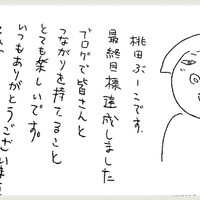 桃田ぶーこです.
最終目標達成しました
ブログで皆さんと
つながりを持てること
とても楽しいです。
いつもありがとうございま